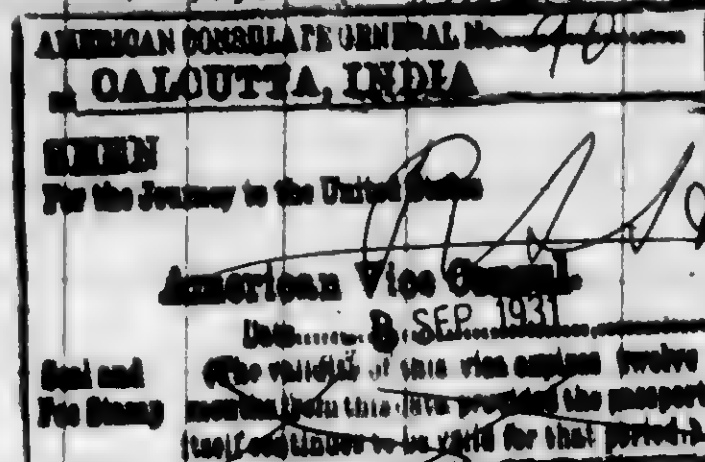 AMERICAN CONSULATE GENERAL No. 90
CALCUTTA, INDIA
SEEN
For the Journey to the United States
American Vice Consul.
Date 8 SEP 1931
Seal and
Fee Stamp
(The validity of this visa expires twelve
months from this date provided the passport
itself continues to be valid for that period.)